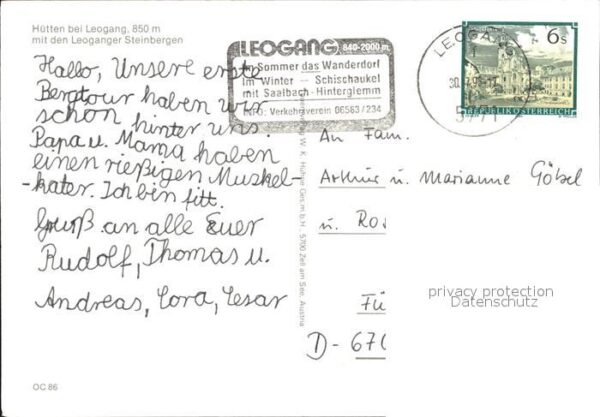 Hütten bei Leogang, 850 m
mit den Leoganger Steinbergen
Hallo, Unsere erste
Bergtour haben wir
schon hinter uns.
Papa u. Mama haben
einen rießigen Muskel-
-kater. Ich bin fitt.
Gruß an alle Euer
Rudolf, Thomas u.
Andreas, Cora, Cesar
OC 86
LEOGANG 840-2000 m
Im Sommer das Wanderdorf
Im Winter - Schischaukel
mit Saalbach-Hinterglemm
INFO: Verkehrsverein 06583/234
LEOGANG
6 S
REPUBLIK ÖSTERREICH
Ges.m.b.H., 5700 Zell am See, Austria
An Fam.
Arthur u. Marianne Göbel
u. Ros
Fü
D-670
privacy protection
Datenschutz